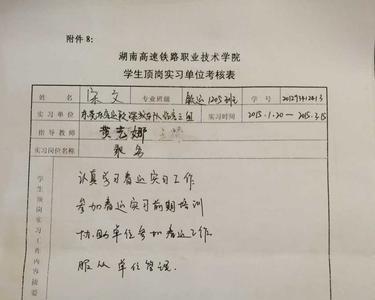 附件8:
湖南高速铁路职业技术学院
学生顶岗实习单位考核表
姓 名 梁文 专业班级 铁运1205班 学 号
实习单位 实习时间 2015.1.20—2015.3.15
指导教师 黄志娜
实习岗位名称 乘务
学生顶岗实习工作内容摘要
认真学习春运实习工作
参加春运实习前期培训
协助单位参加春运工作
服从单位管理.